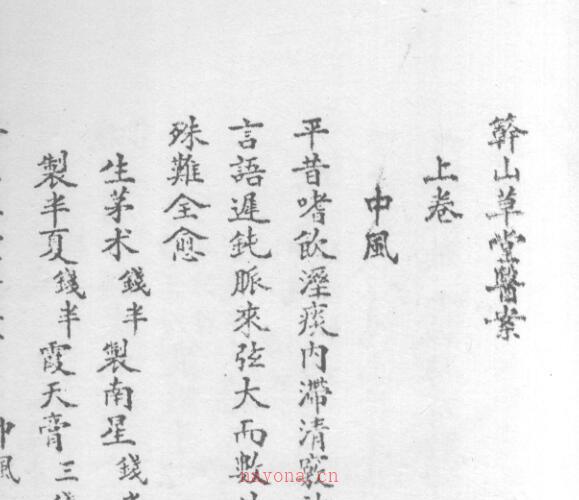 簳山草堂醫案
上卷
中風
平昔嗜飲溼痰內滯清竅
言語遲鈍脈來弦大而數
殊難全愈
生茅术錢半 製南星錢
製半夏錢半 霞天膏三錢
中風
nayona.cn